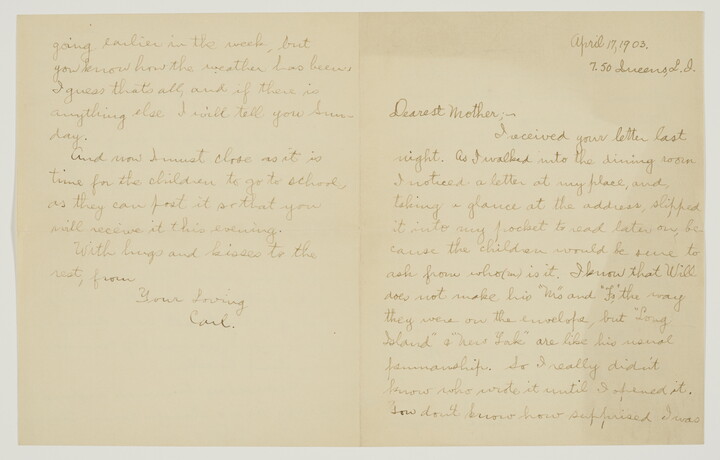 April 17, 1903.
7.50 Queens, L.I.
Dearest Mother:—
I received your letter last
night. As I walked into the dining room
I noticed a letter at my place, and,
taking a glance at the address, slipped
it into my pocket to read later on, be
cause the children would be sure to
ask from who(m) is it. I know that Will
does not make his "Ms" and "Is" the way
they were on the envelope, but "Long
Island" & "New York" are like his usual
penmanship. So I really didn't
know who wrote it until I opened it.
You don't know how supprised I was
going earlier in the week, but
you know how the weather has been.
I guess that's all, and if there is
anything else I will tell you Sun-
day.
And now I must close as it is
time for the children to go to school,
as they can post it so that you
will receive it this evening.
With hugs and kisses to the
rest, from
Your Loving
Carl.